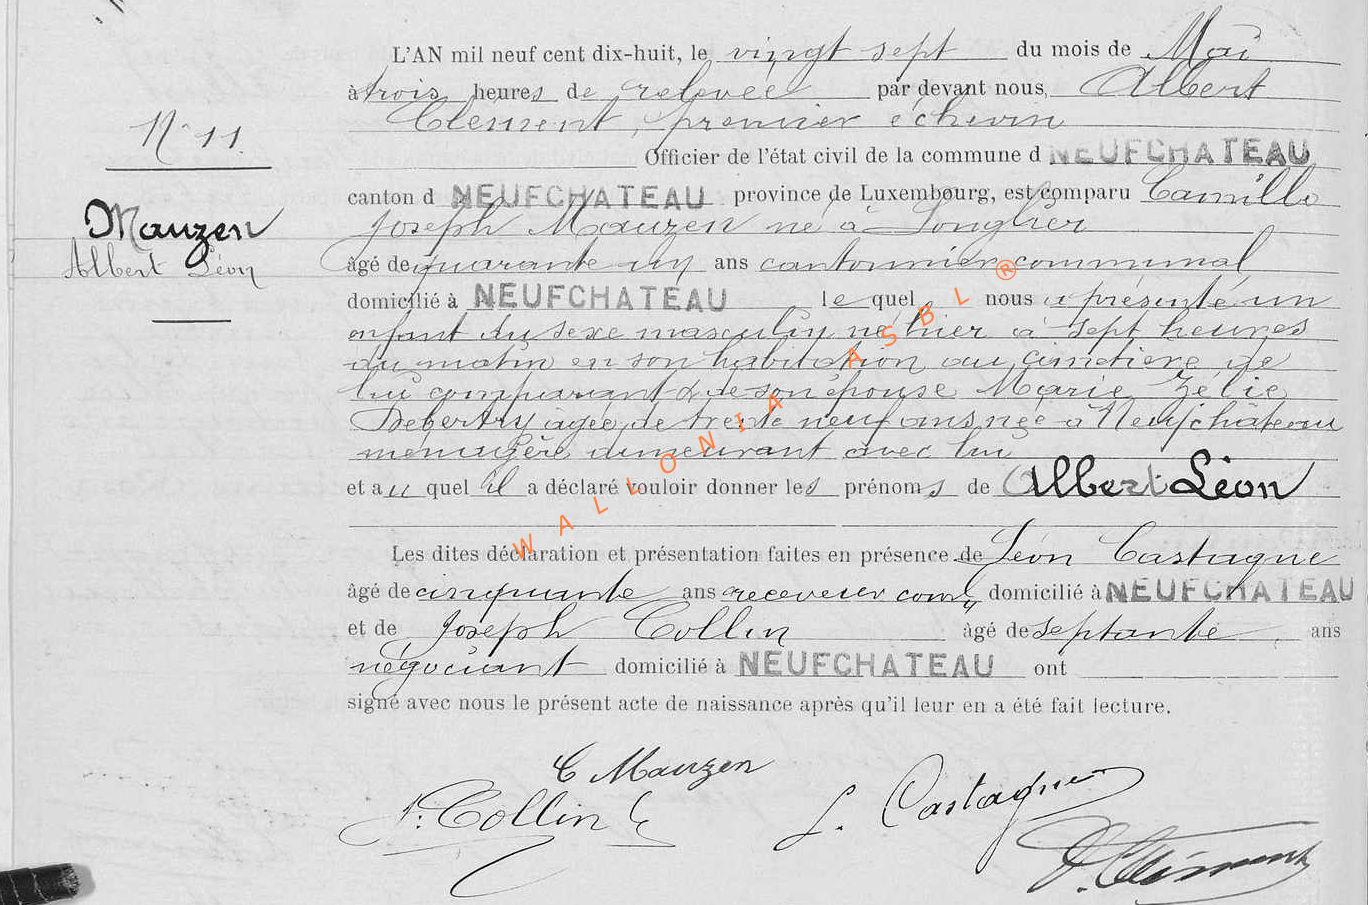 L'AN mil neuf cent dix-huit, le vingt sept du mois de Mai
à trois heures de relevée par devant nous, Albert
Clément, premier échevin
N° 11.
Officier de l'état civil de la commune d NEUFCHATEAU
canton d NEUFCHATEAU province de Luxembourg, est comparu Camille
Mauzen
Joseph Mauzen né à Longlier
Albert Léon
âgé de quarante un ans cantonnier communal
domicilié à NEUFCHATEAU lequel nous a présenté un
enfant du sexe masculin né hier à sept heures
du matin en son habitation au cimetière de
lui comparant & de son épouse Marie Zélie
âgée de trente neuf ans, née à Neufchâteau
ménagère demeurant avec lui
et au quel il a déclaré vouloir donner les prénoms de Albert Léon
Les dites déclaration et présentation faites en présence de Léon Castagne
âgé de cinquante ans receveur com domicilié à NEUFCHATEAU
et de Joseph Collin âgé de septante ans
négociant domicilié à NEUFCHATEAU ont
signé avec nous le présent acte de naissance après qu'il leur en a été fait lecture.
C Mauzen
J. Collin
L. Castagne
A. Clément
WALLONIA ASBL ®